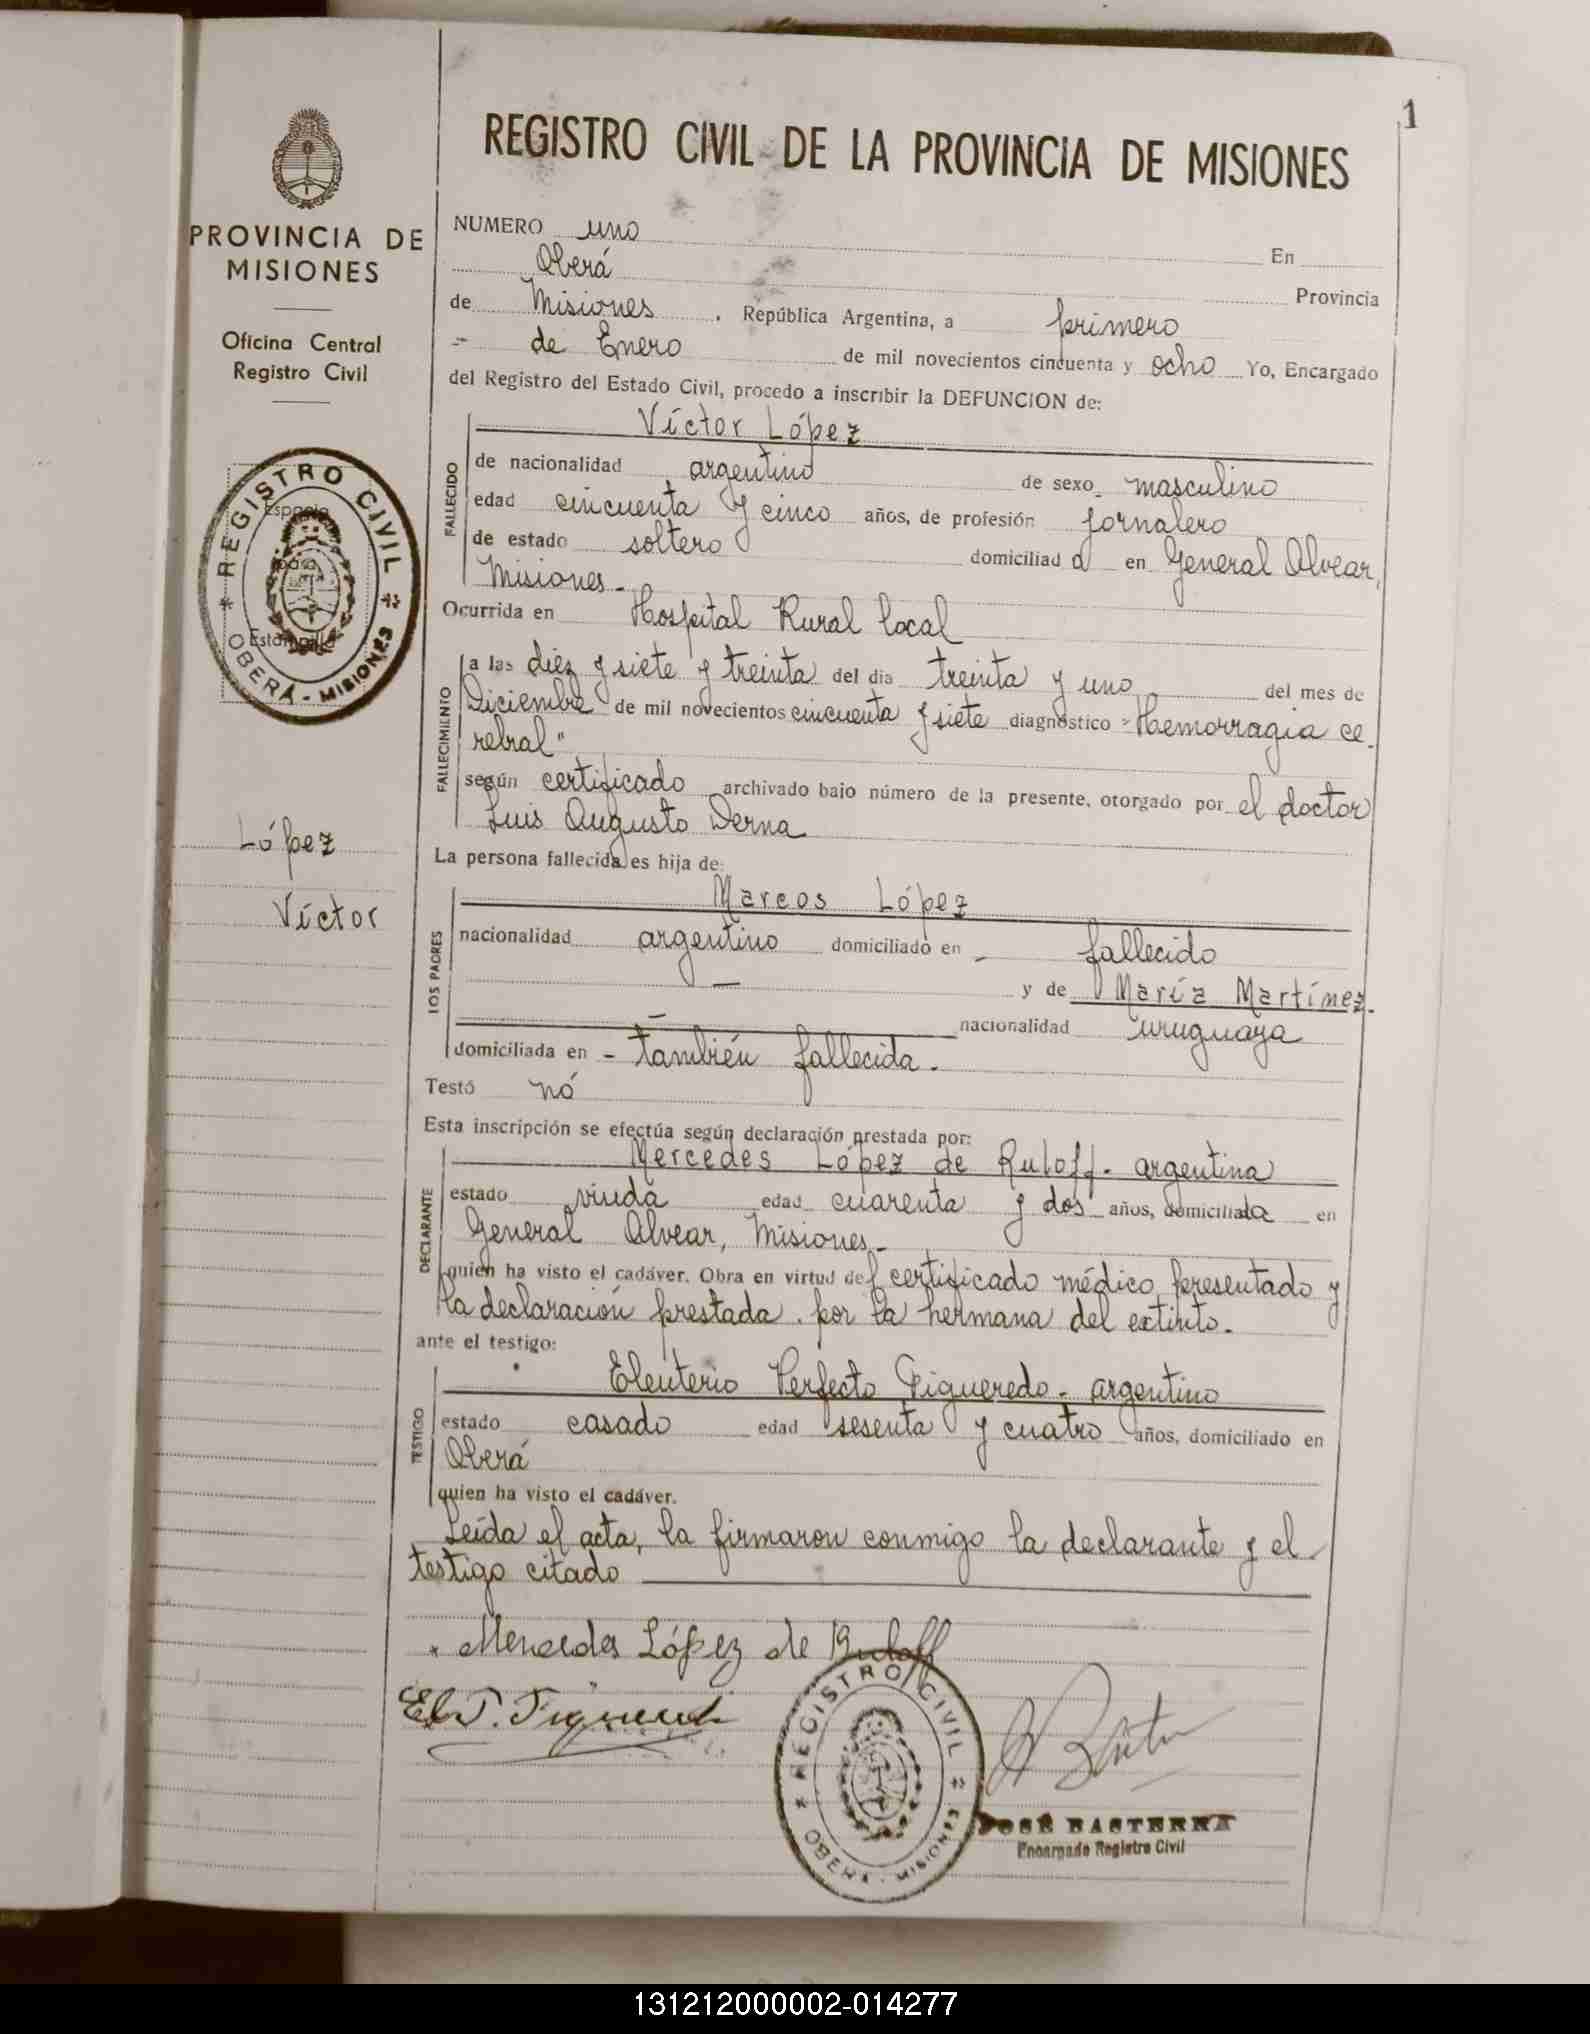 1
REGISTRO CIVIL DE LA PROVINCIA DE MISIONES
PROVINCIA DE
MISIONES
Oficina Central
Registro Civil
REGISTRO CIVIL
Espacio
para
Estampilla
OBERÁ - MISIONES
López
Víctor
NUMERO uno En
Oberá Provincia
de Misiones, República Argentina, a primero
de Enero de mil novecientos cincuenta y ocho Yo, Encargado
del Registro del Estado Civil, procedo a inscribir la DEFUNCION de:
FALLECIDO
Víctor López
de nacionalidad argentino de sexo masculino
edad cincuenta y cinco años, de profesión jornalero
de estado soltero domiciliado en General Alvear,
Misiones.-
Ocurrida en Hospital Rural local
FALLECIMIENTO
a las diez y siete y treinta del dia treinta y uno del mes de
Diciembre de mil novecientos cincuenta y siete diagnóstico "Hemorragia ce-
rebral"
según certificado archivado bajo número de la presente, otorgado por el doctor
Luis Augusto Derna
La persona fallecida es hija de:
LOS PADRES
Marcos López
nacionalidad argentino domiciliado en - fallecido
- y de María Martínez.
- nacionalidad uruguaya
domiciliada en - también fallecida.
Testó nó
Esta inscripción se efectúa según declaración prestada por:
DECLARANTE
Mercedes López de Ruloff - argentina
estado viuda edad cuarenta y dos años, domiciliada en
General Alvear, Misiones.-
quien ha visto el cadáver. Obra en virtud del certificado médico presentado y
la declaración prestada por la hermana del extinto.-
ante el testigo:
TESTIGO
Eleuterio Perfecto Figueredo - argentino
estado casado edad sesenta y cuatro años, domiciliado en
Oberá
quien ha visto el cadáver.
Leída el acta, la firmaron conmigo la declarante y el
testigo citado
Mercedes López de Ruloff
El. P. Figueredo
REGISTRO CIVIL
OBERÁ - MISIONES
JOSÉ BASTERRA
Encargado Registro Civil
131212000002-014277